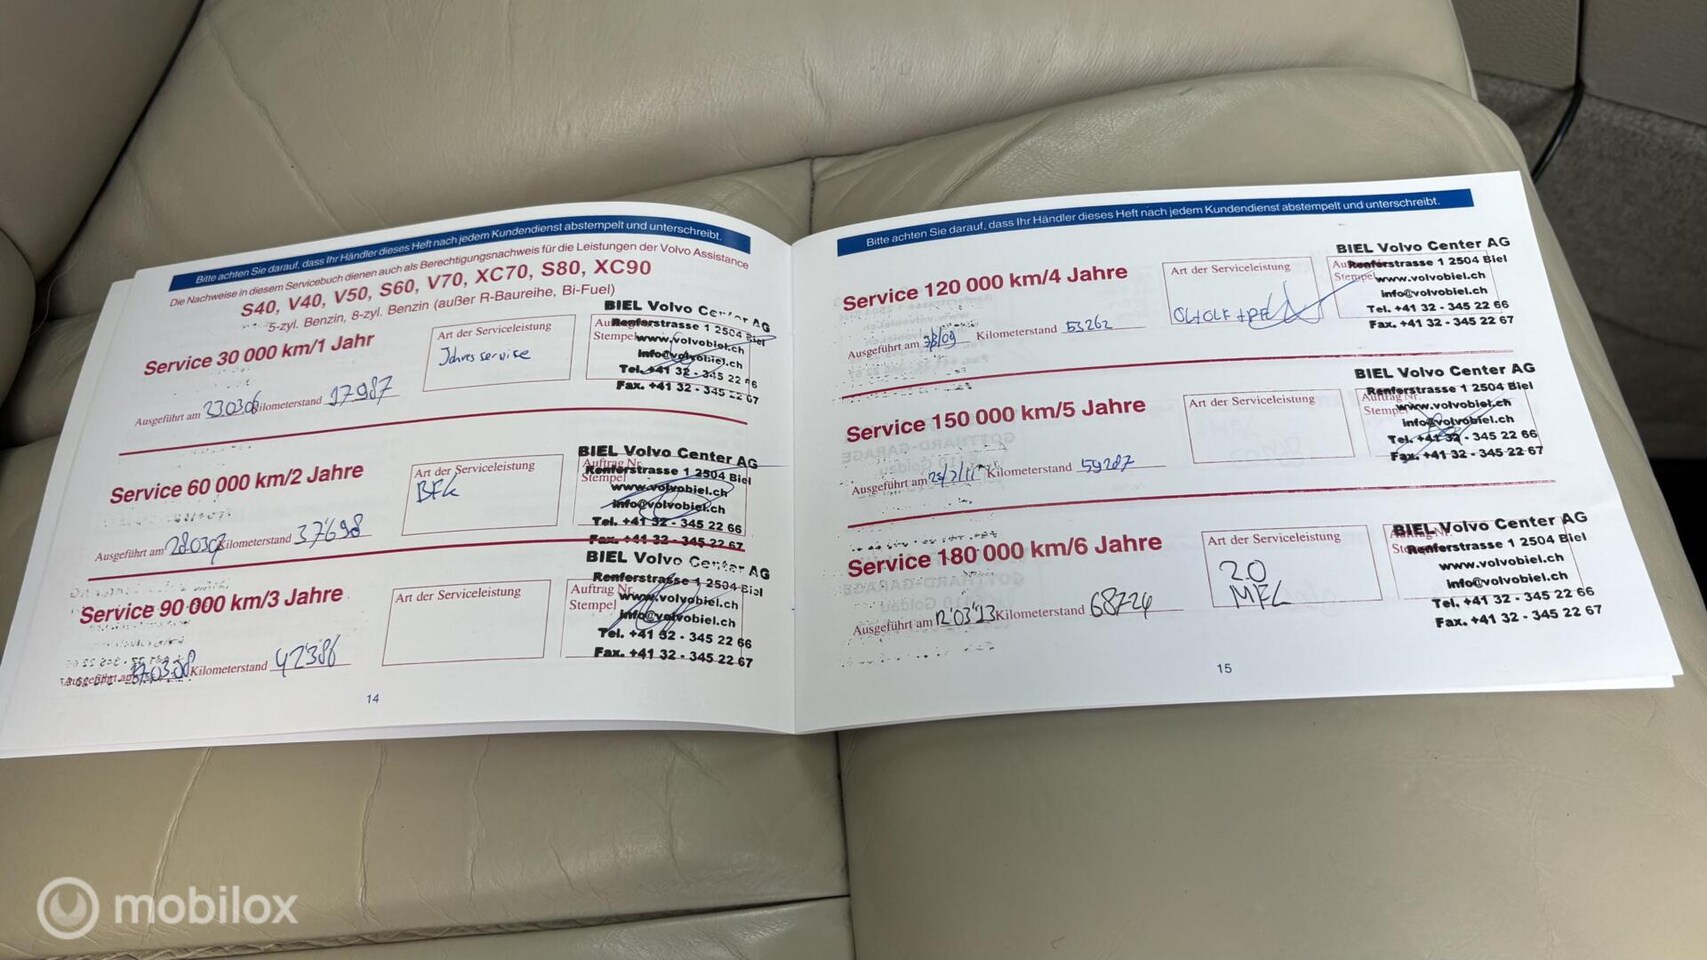 Bitte achten Sie darauf, dass Ihr Händler dieses Heft nach jedem Kundendienst abstempelt und unterschreibt.
Die Nachweise in diesem Servicebuch dienen auch als Berechtigungsnachweis für die Leistungen der Volvo Assistance
S40, V40, V50, S60, V70, XC70, S80, XC90
5-zyl. Benzin, 8-zyl. Benzin (außer R-Baureihe, Bi-Fuel)
Service 30 000 km/1 Jahr
Art der Serviceleistung
Jahresservice
BIEL Volvo Center AG
Renferstrasse 1 2504 Biel
Stempel
www.volvobiel.ch
info@volvobiel.ch
Tel. +41 32 - 345 22 66
Fax. +41 32 - 345 22 67
Ausgeführt am 230306 Kilometerstand 17987
Service 60 000 km/2 Jahre
Art der Serviceleistung
BIEL Volvo Center AG
Auftrag Nr.
Renferstrasse 1 2504 Biel
Stempel
www.volvobiel.ch
info@volvobiel.ch
Tel. +41 32 - 345 22 66
Fax. +41 32 - 345 22 67
Ausgeführt am 280307 Kilometerstand 37698
Service 90 000 km/3 Jahre
Art der Serviceleistung
BIEL Volvo Center AG
Renferstrasse 1 2504 Biel
Auftrag Nr.
Stempel
www.volvobiel.ch
info@volvobiel.ch
Tel. +41 32 - 345 22 66
Fax. +41 32 - 345 22 67
Ausgeführt am Kilometerstand 42386
14
Bitte achten Sie darauf, dass Ihr Händler dieses Heft nach jedem Kundendienst abstempelt und unterschreibt.
Service 120 000 km/4 Jahre
Art der Serviceleistung
BIEL Volvo Center AG
Renferstrasse 1 2504 Biel
Stempel
www.volvobiel.ch
info@volvobiel.ch
Tel. +41 32 - 345 22 66
Fax. +41 32 - 345 22 67
Ausgeführt am Kilometerstand 53262
Service 150 000 km/5 Jahre
Art der Serviceleistung
BIEL Volvo Center AG
Renferstrasse 1 2504 Biel
Auftrag Nr.
Stempel
www.volvobiel.ch
info@volvobiel.ch
Tel. +41 32 - 345 22 66
Fax. +41 32 - 345 22 67
Ausgeführt am Kilometerstand 59287
Service 180 000 km/6 Jahre
Art der Serviceleistung
2.0
BIEL Volvo Center AG
Renferstrasse 1 2504 Biel
www.volvobiel.ch
info@volvobiel.ch
Tel. +41 32 - 345 22 66
Fax. +41 32 - 345 22 67
Ausgeführt am 12'03'13 Kilometerstand 68724
15
mobilox